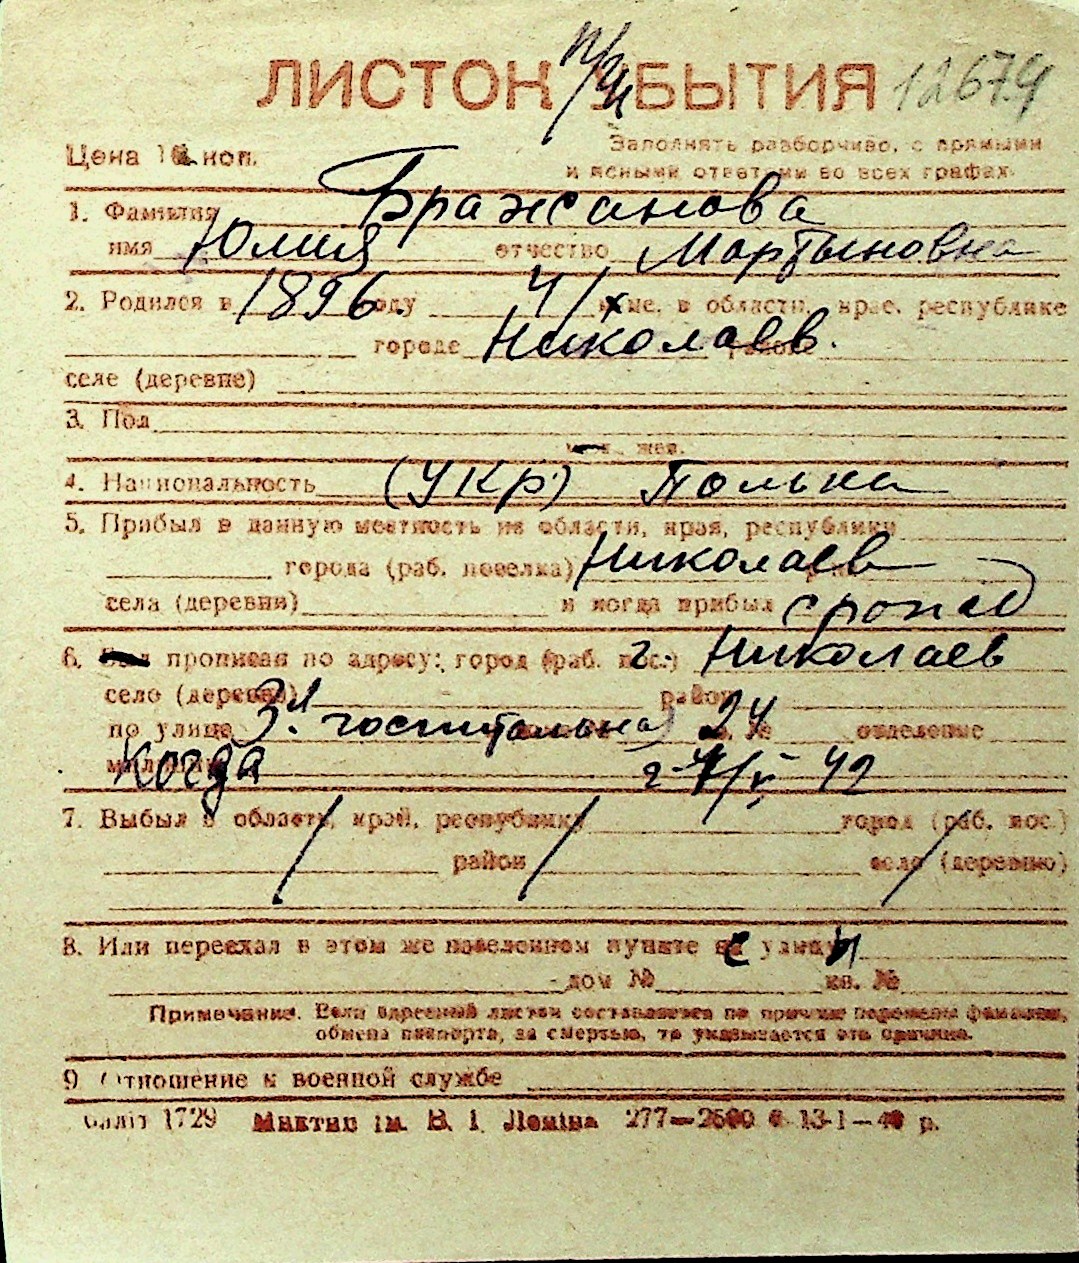 ЛИСТОК УБЫТИЯ 12679
Цена 10 коп. Заполнять разборчиво, с прямыми
и ясными ответами во всех графах.
1. Фамилия Бражанова
имя Юлия отчество Мартыновна
2. Родился в 1896 году 4/х в области, крае, республике
городе Николаев.
селе (деревне)
3. Пол
жен.
4. Национальность (укр) Полька
5. Прибыл в данную местность из области, края, республики
города (раб. поселка) Николаев
села (деревни) и когда прибыл
6. прописан по адресу: город (раб. пос.) г. Николаев
село (деревня) район
по улице 3л госпитальная 24 № отделение
Когда 42
7. Выбыл в область, край, республику город (раб. пос.)
район село (деревню)
8. Или переехал в этом же населенном пункте с улицы
дом № кв. №
Примечание. Если адресный листок составляется по причине перемены фамилии,
обмена паспорта, за смертью, то указывается эта причина.
9. Отношение к военной службе
1729 ім. В. І. Леніна 277—2500 13-1—40 р.